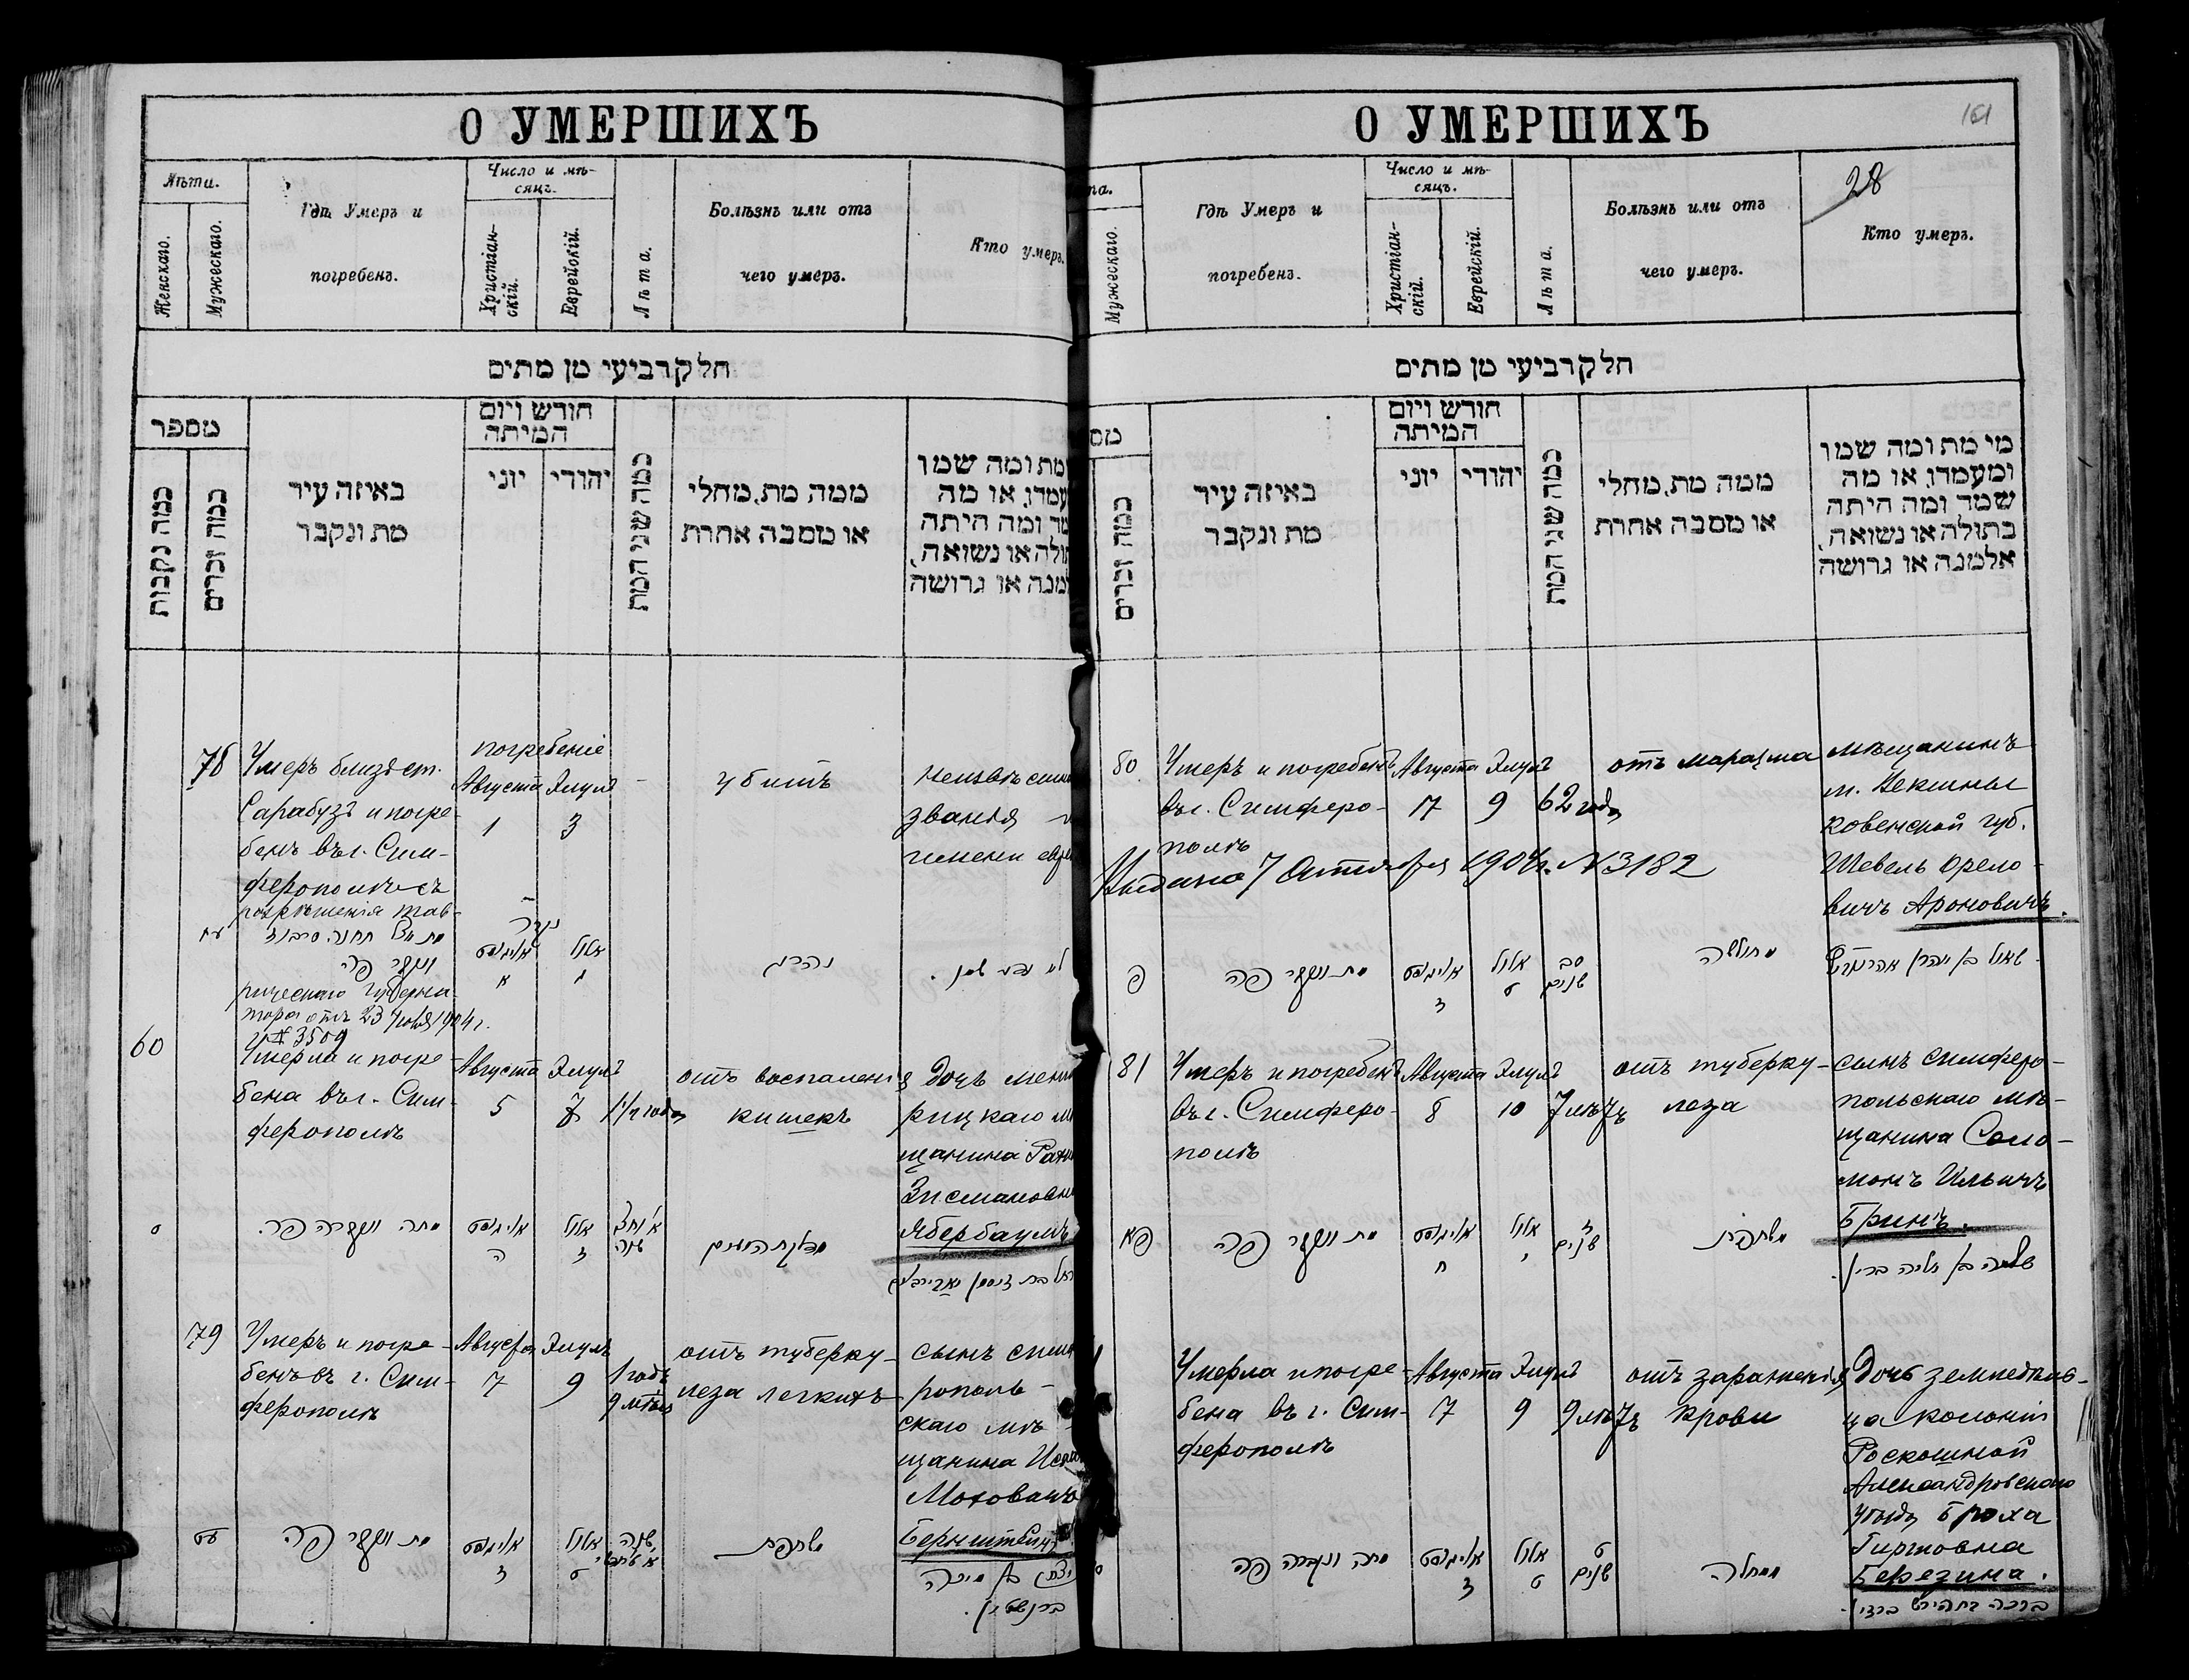 О УМЕРШИХЪ
Лѣта.
Женскаго.
Мужескаго.
Гдѣ Умеръ и
погребенъ.
Число и мѣ-
сяцъ.
Христіан-
скій.
Еврейскій.
Лѣта.
Болѣзнь или отъ
чего умеръ.
Кто умеръ.
חלק רביעי מן מתים
מספר
כמה נקבות
כמה זכרים
באיזה עיר
מת ונקבר
חודש ויום
המיתה
יוני
יהודי
כמה שני המת
ממה מת, מחלי
או מסבה אחרת
מת ומה שמו
עמדו, או מה
ומה היתה
או נשואה,
או גרושה
78
Умеръ близъ ст.
Сарабузъ и погре-
бенъ въ г. Сим-
ферополѣ съ
разрѣшенія Тав-
рическаго Губерна-
тора отъ 23 1904 г.
№ 3509
погребеніе
Августа
1
Элулъ
3
убитъ
неизвѣстн
званія
имени евре
עח
ונקבר פה
אויגוסט
א
אלול
ג
נהרג
60
Умерла и погре-
бена въ г. Сим-
ферополѣ
Августа
5
Элулъ
7
1½ года
отъ воспаленія
кишекъ
Дочь мели
щанина
Зисмановна
Ябербаумъ
ס
מתה ונקברה פה.
אויגוסט
ה
אלול
ז
שנה
79
Умеръ и погре-
бенъ въ г. Сим-
ферополѣ
Августа
7
Элулъ
9
1 годъ
9 мѣс
отъ туберку-
леза легкихъ
сынъ симф
рополь-
скаго мѣ-
щанина
Мохованъ
Бернштейнъ
עט
מת ונקבר פה
אויגוסט
ז
אלול
ט
שנה
משחפת
ברנשטיין.
О УМЕРШИХЪ
161
28
та.
Мужескаго.
Гдѣ Умеръ и
погребенъ.
Число и мѣ-
сяцъ.
Христіан-
скій.
Еврейскій.
Лѣта.
Болѣзнь или отъ
чего умеръ.
Кто умеръ.
חלק רביעי מן מתים
מס
כמה זכרים
באיזה עיר
מת ונקבר
חודש ויום
המיתה
יוני
יהודי
כמה שני המת
ממה מת, מחלי
או מסבה אחרת
מי מת ומה שמו
ומעמדו, או מה
שמה ומה היתה
בתולה או נשואה,
אלמנה או גרושה
80
Умеръ и погребенъ
въ г. Симферо-
полѣ
Августа
7
Элулъ
9
62 года
отъ маразма
мѣщанинъ
м. Векшны
Ковенской губ.
Шевель Орело-
вичъ Ароновичъ.
Выдано 7 Октября 1904 г. № 3182
פ
מת ונקבר פה
אויגוסט
ז
אלול
ט
סב
שנים
מחולשה
81
Умеръ и погребенъ
въ г. Симферо-
полѣ
Августа
8
Элулъ
10
7 лѣтъ
отъ туберку-
леза
сынъ симферо-
польскаго мѣ-
щанина Соло-
монъ Ильичъ
Бринъ.
פא
מת ונקבר פה
אויגוסט
ח
אלול
י
ז
שנים
משחפת
שלמה בן אליה ברין.
Умерла и погре-
бена въ г. Сим-
ферополѣ
Августа
7
Элулъ
9
9 лѣтъ
отъ зараженія
крови
Дочь земледѣль-
ца колоніи
Роскошной
Александровскаго
уѣзда Броха
Гиршовна
Березина.
מתה ונקברה פה
אויגוסט
ז
אלול
ט
ט
שנים
ממחלה